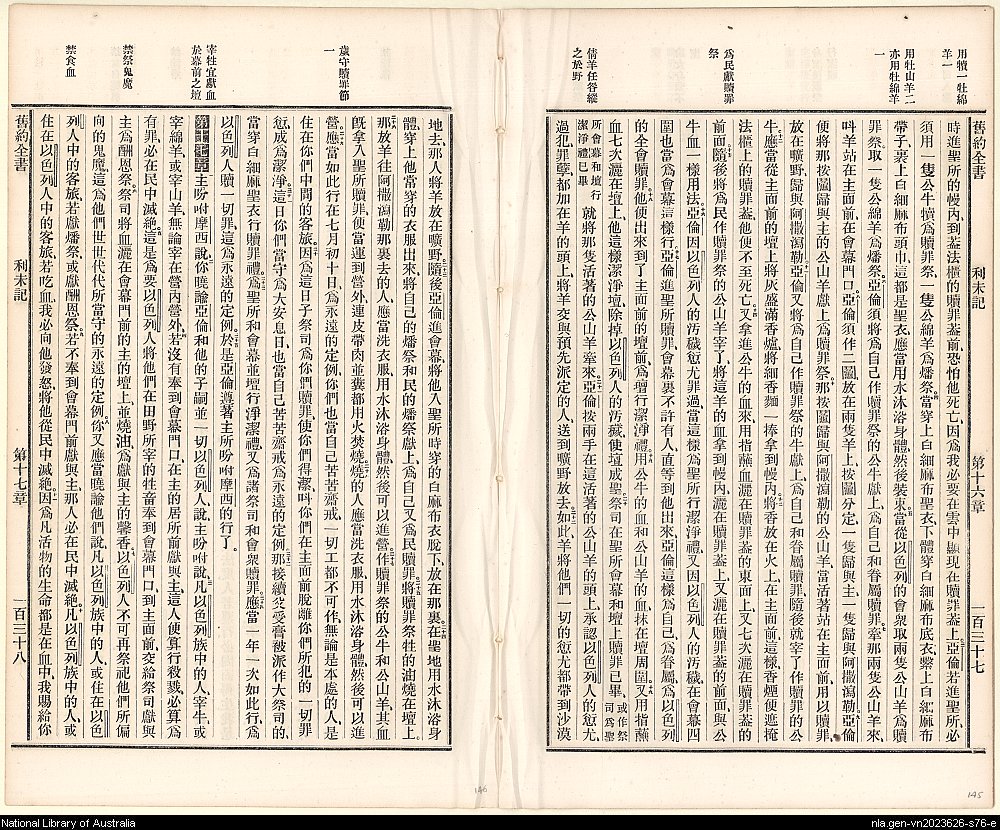 用犢一牡綿
羊一
用牡山羊二
亦用牡綿羊
一
爲民獻贖罪
祭
倩羊任咎縱
之於野
舊約全書 利未記 第十六章 一百三十七
時進聖所的幔內到葢法櫃的贖罪葢前恐怕他死亡因爲我必要在雲中顯現在贖罪葢上亞倫若進聖所必
須用一隻公牛犢爲贖罪祭一隻公綿羊爲燔祭當穿上白細麻布聖衣下體穿白細麻布底衣繫上白細麻布
帶子裹上白細麻布頭巾這都是聖衣應當用水沐浴身體然後裝束當從以色列的會衆取兩隻公山羊爲贖
罪祭取一隻公綿羊爲燔祭亞倫須將爲自己作贖罪祭的公牛獻上爲自己和眷屬贖罪牽那兩隻公山羊來
呌羊站在主面前在會幕門口亞倫須作二鬮放在兩隻羊上按鬮分定一隻歸與主一隻歸與阿撒瀉勒亞倫
便將那按鬮歸與主的公山羊獻上爲贖罪祭那按鬮歸與阿撒瀉勒的公山羊當活著站在主面前用以贖罪
放在曠野歸與阿撒瀉勒亞倫又將爲自己作贖罪祭的牛獻上爲自己和眷屬贖罪隨後就宰了作贖罪的公
牛應當從主面前的壇上將灰盛滿香爐將細香麵一捧拿到幔內將香放在火上在主面前這樣香煙便遮掩
法櫃上的贖罪葢他便不至死亡又拿進公牛的血來用指蘸血灑在贖罪葢的東面上又七次灑在贖罪葢的
前面隨後將爲民作贖罪祭的公山羊宰了將這羊的血拿到幔內灑在贖罪葢上又灑在贖罪葢的前面與公
牛血一樣用法亞倫因以色列人的汚穢愆尤罪過當這樣爲聖所行潔淨禮又因以色列人的汚穢在會幕四
圍也當爲會幕這樣行亞倫進聖所贖罪會幕裏不許有人直等到他出來亞倫這樣爲自己爲眷屬爲以色列
的全會贖罪他便出來到了主面前的壇前爲壇行潔淨禮用公牛的血和公山羊的血抹在壇周圍又用指蘸
血七次灑在壇上他這樣潔淨壇除掉以色列人的汚穢使壇成聖祭司在聖所會幕和壇上贖罪已畢或作祭司爲聖
所會幕和壇行潔淨禮已畢就將那隻活著的公山羊牽來亞倫按兩手在這活著的公山羊的頭上承認以色列人的愆尤
過犯罪孽都加在羊的頭上將羊交與預先派定的人送到曠野放去如此羊將他們一切的愆尤都帶到沙漠
歲守贖罪節
一
宰牲宜獻血
於幕前之壇
禁祭鬼魔
禁食血
地去那人將羊放在曠野隨後亞倫進會幕將他入聖所時穿的白麻布衣脫下放在那裏在聖地用水沐浴身
體穿上他當穿的衣服出來將自己的燔祭和民的燔祭獻上爲自己又爲民贖罪將贖罪祭牲的油燒在壇上
那放羊往阿撒瀉勒那裏去的人應當洗衣服用水沐浴身體然後可以進營作贖罪祭的公牛和公山羊其血
旣拿入聖所贖罪便當運到營外連皮帶肉並糞都用火焚燒燒的人應當洗衣服用水沐浴身體然後可以進
營應當如此行在七月初十日爲永遠的定例你們也當自己苦苦齋戒一切工都不可作無論是本處的人是
住在你們中間的客旅因爲這日子祭司爲你們贖罪使你們得潔呌你們在主面前脫離你們所犯的一切罪
愆成爲潔淨這日你們當守爲大安息日也當自己苦苦齋戒爲永遠的定例那接續父受膏被派作大祭司的
當穿白細麻聖衣行贖罪禮爲聖所和會幕並壇行淨潔禮又爲諸祭司和會衆贖罪應當一年一次如此行爲
以色列人贖一切罪這爲永遠的定例於是亞倫遵著主所吩咐摩西的行了
第十七章主吩咐摩西說你曉諭亞倫和他的子嗣並一切以色列人說主吩咐說凡以色列族中的人宰牛或
宰綿羊或宰山羊無論宰在營內營外若沒有奉到會幕門口在主的居所前獻與主這人便算行殺戮必算爲
有罪必在民中滅絶這是爲要以色列人將他們在田野所宰的牲畜奉到會幕門口到主面前交給祭司獻與
主爲酬恩祭祭司將血灑在會幕門前的主的壇上並燒油爲獻與主的馨香以色列人不可再祭祀他們所偏
向的鬼魔這爲他們世世代代所當守的永遠的定例你又應當曉諭他們說凡以色列族中的人或住在以色
列人中的客旅若獻燔祭或獻酬恩祭若不奉到會幕門前獻與主那人必在民中滅絶凡以色列族中的人或
住在以色列人中的客旅若吃血我必向他發怒將他從民中滅絶因爲凡活物的生命都是在血中我賜給你
舊約全書 利未記 第十七章 一百三十八
146
145
National Library of Australia
nla.gen-vn2023626-s76-e